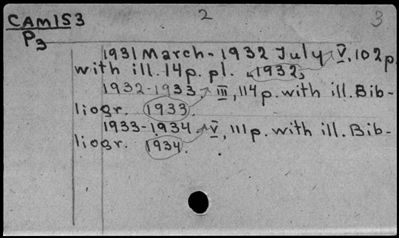 CAM153 2 3
P3
1931 March - 1932 July V, 102p.
with ill. 14p. pl. 1932,
1932-1933 III, 114p. with ill. Bib-
liogr. 1933.
1933-1934 V, 111p. with ill. Bib-
liogr. 1934.